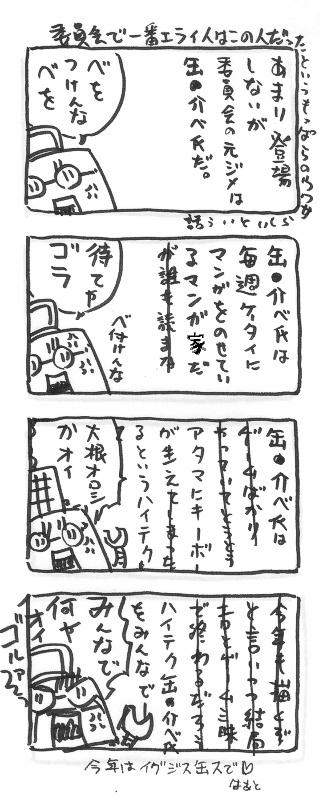 委員会で一番エライ人はこの人だっ
たというもっぱらのウワサ
あまり登場
しないが
委員会の元ジメは
缶の介べ氏だ。
べを
つけんな
べを
話ういといしら
缶の介べ氏は
毎週ケタイに
マンガをのせてい
るマンガ家だ
が誰も読まな
待てや
ゴラ
べ付けんな
缶の介べ氏は
ゲームばかり
やっていてとうとう
アタマにキーボー
が生えてしまった
るというハイテク
大根オロシ
かオイ
今年も描くぞ
と言いつつ結局
ハイテク缶の介べ氏
をみんなで
みんなで
何ヤ
オイ
ゴルァ
今年はイグジス缶スで♡
はもと